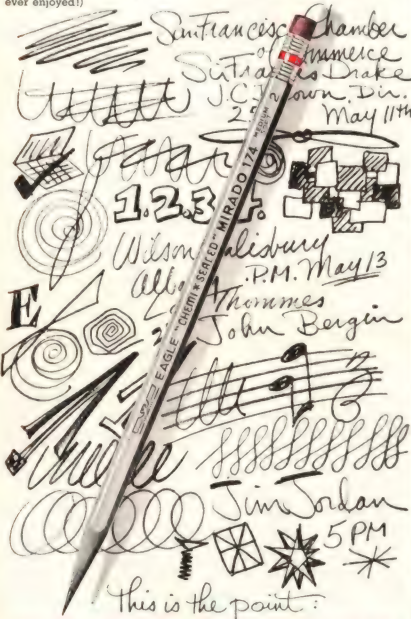 ever enjoyed!)
San Francisco Chamber
of Commerce
Sir Francis Drake
J.C. Brown. Dir.
May 11th
1.2.3.4.
Wilson Salisbury
P.M. May 13
Thommes
John Bergin
E
EAGLE "CHEMI*SEALED" MIRADO 174
Jim Jordan
5 PM
This is the point: